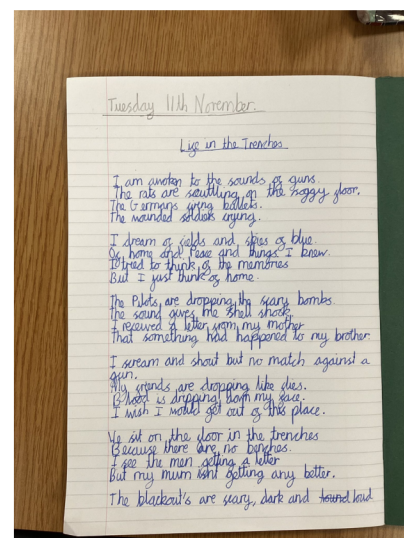 Tuesday 11th November.
Life in the Trenches
I am awoken to the sounds of guns.
The rats are scuttling on the soggy floor.
The Germans firing bullets.
The wounded soldiers crying.
I dream of fields and skies of blue.
Of home and Peace and things I knew.
I tried to think of the memories
But I just think of home.
The Pilots are dropping the scary bombs.
The sound gives me shell shock.
I received a letter from my mother
That something had happened to my brother.
I scream and shout but no match against a
gun.
My friends are dropping like flies.
Blood is dripping down my face.
I wish I would get out of this place.
We sit on the floor in the trenches
Because there are no benches.
I see the men getting a letter
But my mum isnt getting any better.
The blackout's are scary, dark and found loud